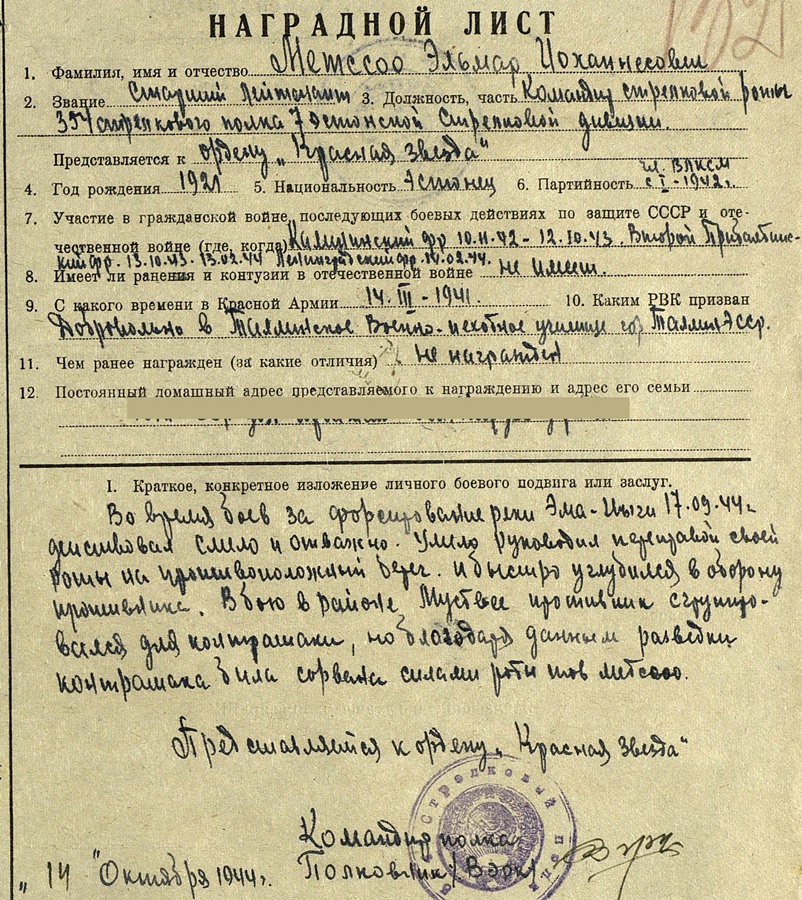 НАГРАДНОЙ ЛИСТ
1. Фамилия, имя и отчество Метссоо Эльмар Иоханнесович
2. Звание Старший Лейтенант 3. Должность, часть Командир стрелковой роты
354 стрелкового полка 7 Эстонской Стрелковой дивизии.
Представляется к ордену „Красная звезда"
4. Год рождения 1921 5. Национальность Эстонец 6. Партийность чл. ВЛКСМ с I-1942г.
7. Участие в гражданской войне, последующих боевых действиях по защите СССР и оте-
чественной войне (где, когда) Калининский фр 10.11.42 - 12.10.43. Второй Прибалтийс-
кий фр. 13.10.43 - 13.02.44 Ленинградский фр. 14.02.44.
8. Имеет ли ранения и контузии в отечественной войне не имеет.
9. С какого времени в Красной Армии 14.III-1941. 10. Каким РВК призван
Добровольно в Таллинское Военно-пехотное училище гор Таллин Эсср.
11. Чем ранее награжден (за какие отличия) не награжден
12. Постоянный домашный адрес представляемого к награждению и адрес его семьи
I. Краткое, конкретное изложение личного боевого подвига или заслуг.
Во время боев за форсирование реки Эма-Иыги 17.09.44г
действовал смело и отважно. Умело руководил переправой своей
роты на противоположный берег. и быстро углубился в оборону
противника. В бою в районе Муствее противник сгрупиро-
вался для контратаки, но благодаря данным разведки
контратака была сорвана силами роты тов метссоо.
Представляется к ордену „Красная звезда"
Командир полка
„14" Октября 1944г. Полковник (Вэрк)
Стрелковый полк